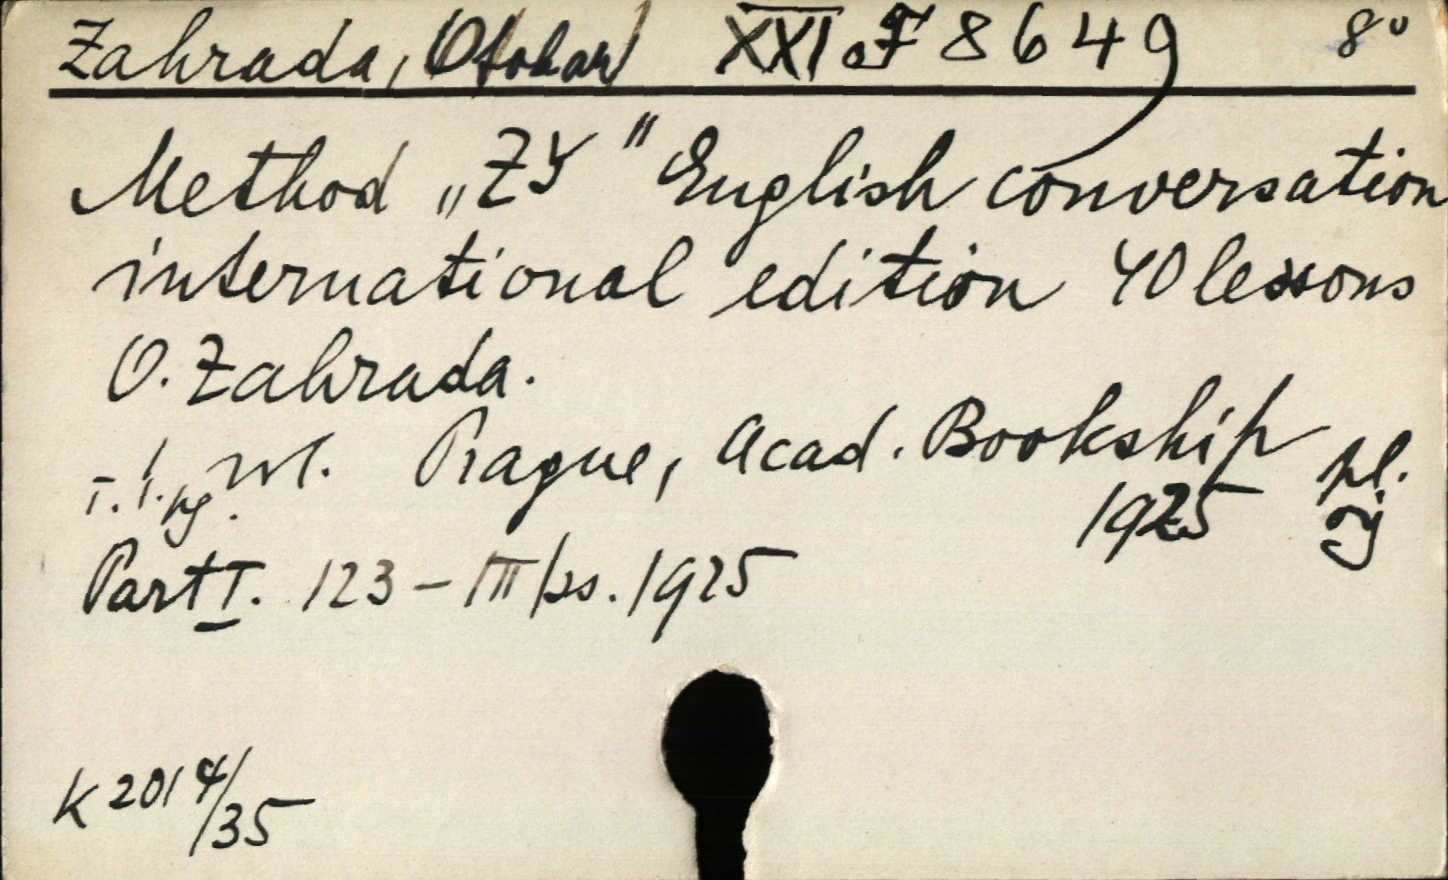 Zahrada, Otokar XXI F 8649 8°
Method „ZY" English conversation
international edition 40 lessons
O. Zahrada.
vl. Prague, Acad. Bookship pl.
1925
Part I. 123 – III 1925
K 2014/35